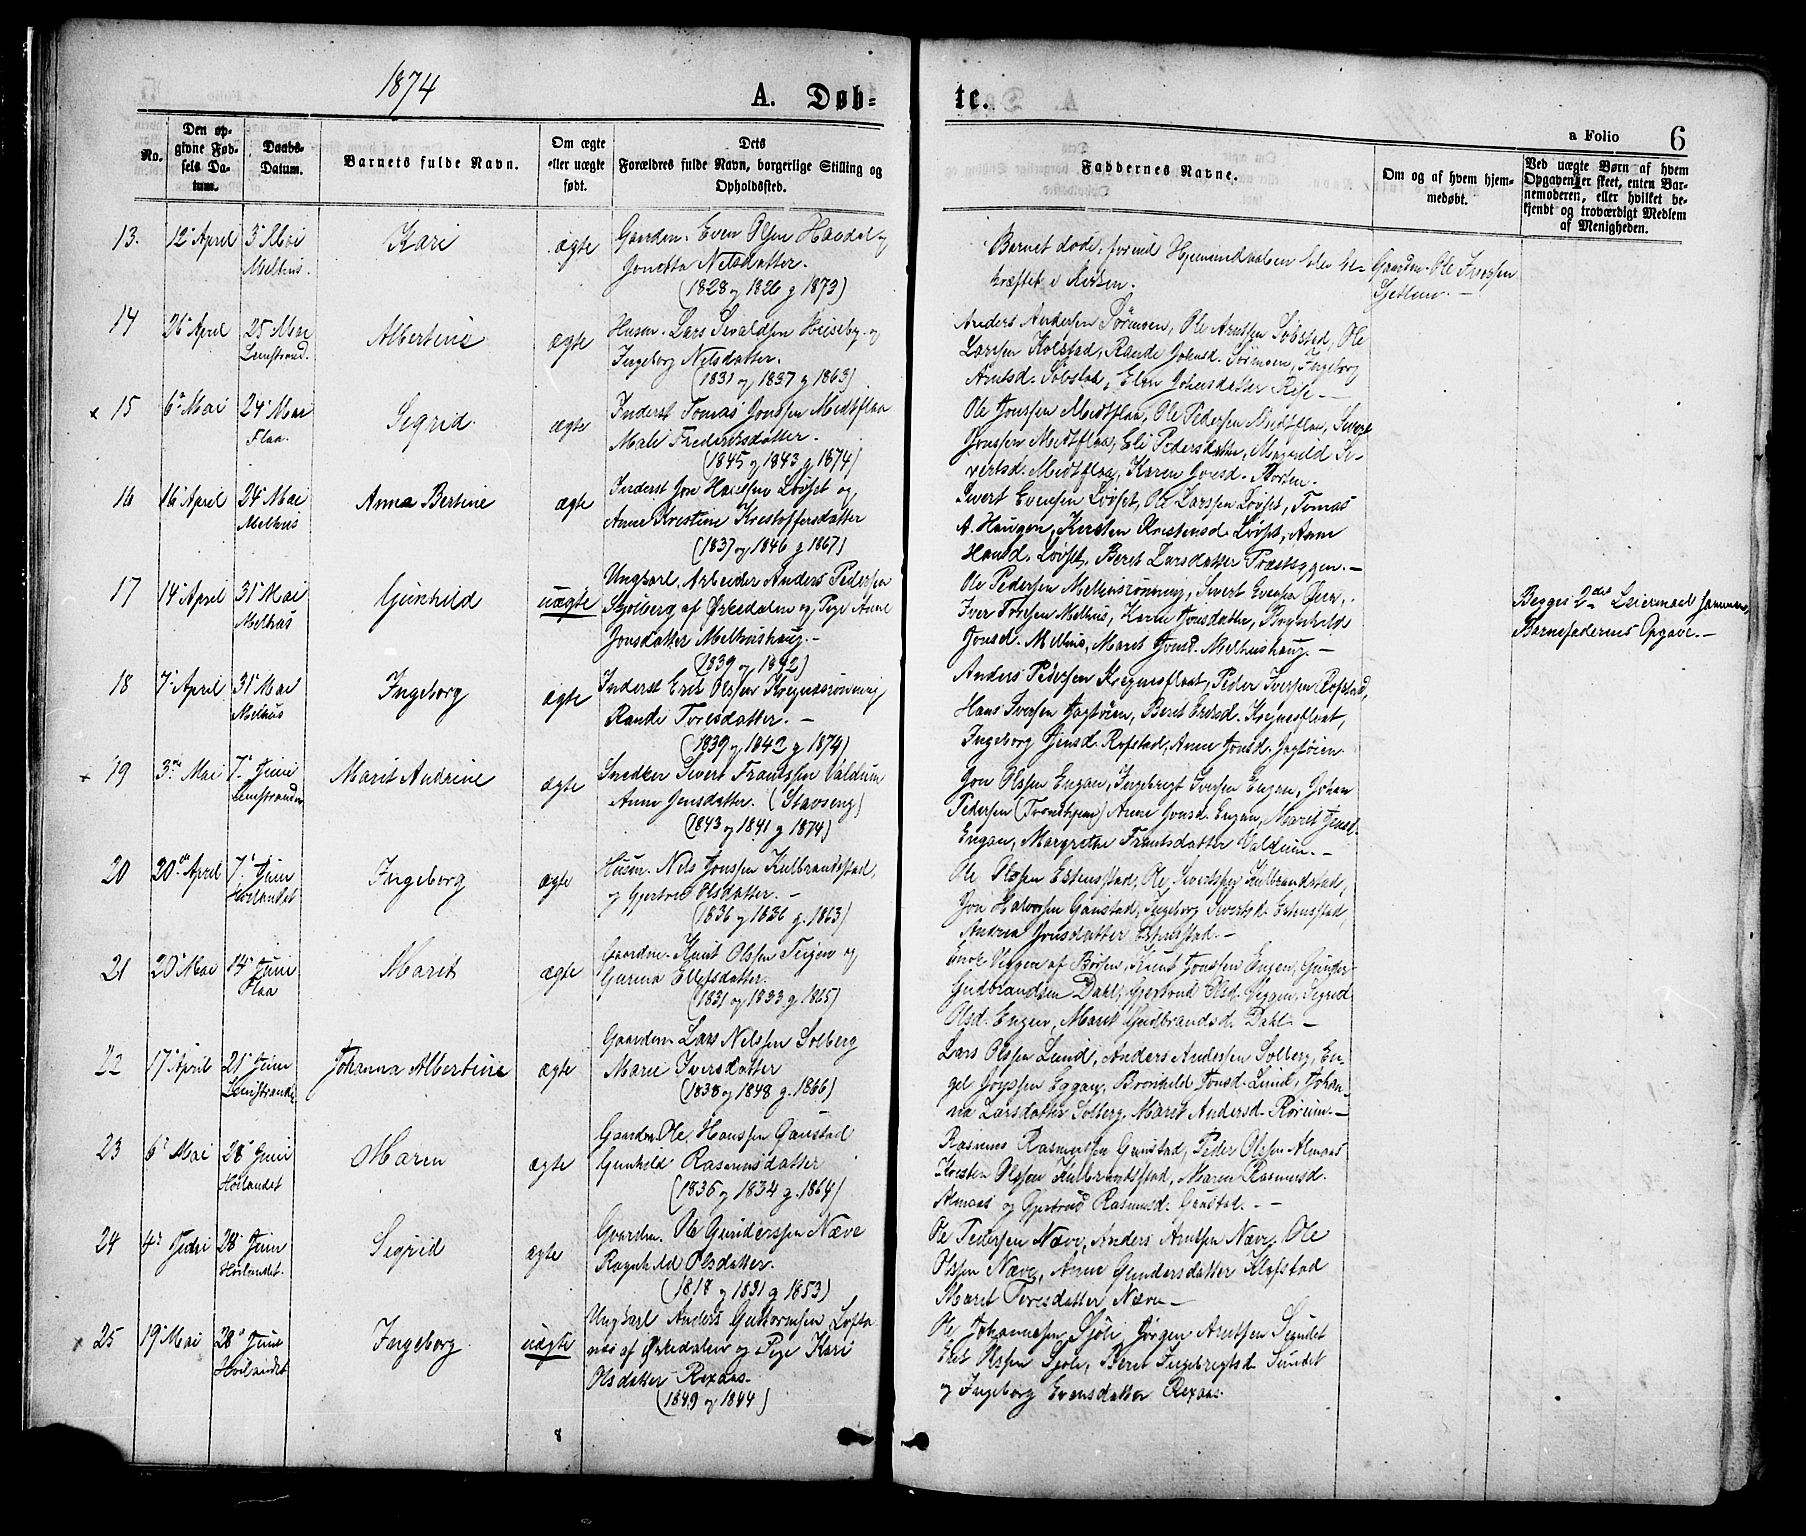 1874
A. Døb-
te.
a Folio 6
No.
Den op-
givne Fød-
sels Da-
tum.
Daabs-
Datum.
Barnets fulde Navn.
Om ægte
eller uægte
født.
Dets
Forældres fulde Navn, borgerlige Stilling og
Opholdssted.
Faddernes Navne.
Om og af hvem hjem-
medøbt.
Ved uægte Børn af hvem
Opgaven er skeet, enten Bar-
nemoderen, eller hvilket be-
kjendt og troværdigt Medlem
af Menigheden.
13. 12 April 3 Mai
Melhus.
Kari
ægte
Gaardm. Even Olsen Havdal og
Jonetta Nilsdatter.
(1828 og 1826 g 1873)
Barnet døde, forind Hjemmedaaben blev be-
kræftet i Kirken.
Gaardm. Ole Iversen
14 26 April 25 Mai
Lenstrand.
Albertine
ægte
Husm. Lars Sivaldsen Huseby og
Ingeborg Nilsdatter.
(1831 og 1837 g 1863)
Anders Andersen Sørmoen, Ole Arntsen Søbstad, Ole
Larsen Kolstad, Rande Johnsd. Sørmoen, Ingeborg
Arntsd. Søbstad, Elen Johnsdatter
x 15 6 Mai 24 Mai
Flaa.
Sigrid.
ægte
Inderst Tomas Jonssen Midtflaa
Mali Frederiksdatter.
(1845 og 1843 g 1874)
Ole Jonssen Midtflaa, Ole Pedersen Midtflaa, Sivert
Jonssen Midtflaa, Eli Pedersdatter, Magnild Si-
vertsd. Midtflaa, Karen Jonsd. Borten.
16 16 April 24 Mai
Melhus
Anna Bertine
ægte
Inderst Jon Løvset og
Anne Kristine Kristoffersdatter
(1837 og 1846 g 1867)
Sivert Evensen Løvset, Ole Larssen Løvset, Tomas
A. Haugen, Kirsten Kristensd. Løvset, Anne
Hansd. Løvset, Beret Larsdatter
17 14 April 31 Mai
Melhus
Gunhild
uægte
Ungkarl. Arbeider Anders Pedersen
Skjølberg af Ørkedalen og Pige Anne
Jonsdatter Melhushaug.-
(1839 og 1842)
Ole Pedersen Sivert Evensen
Iver Melhus, Karen Jonsdatter, Brynhild
Jonsd. Melhus, Maret Jonsd. Melhushaug.-
Begges 2det Leiermaal sammen
Barnefaderens Opgave.-
18 7 April 31 Mai
Melhus
Ingeborg
ægte
Inderst Erik Olssen
Rande Toresdatter.-
(1839 og 1842 g 1874)
Anders Pedersen Peder Iversen Rofstad,
Hans Iversen Jagtøien, Beret
Ingeborg Jensd. Rofstad, Anne Jonsd. Jagtøien
x 19 3 Mai 7 Juni
Lenstranden
Marit Andrine
ægte
Snedker Sivert Frantssen Valdum
Anne Jensdatter. (Stavseng)
(1843 og 1841 g 1874)
Jon Olssen Engan, Ingebrigt Iversen Engen, Johan
Pedersen (Trondhjem) Anne Jonsd. Engan, Maret Jensd.
Engan, Margrethe Frantsdatter Valdum.-
20 20 April 7 Juni
Høilandet
Ingeborg
ægte
Husm. Nils Jonssen Kulbrandstad,
og Gjertrud Olsdatter.-
(1836 og 1836 g. 1863)
Ole Olssen Estenstad, Ole Sivertsen Kulbrandstad,
Jon Halvorsen Gaustad, Ingeborg Sivertsd. Estenstad,
Andrea Jonsdatter Estenstad.-
21 20 Mai 14 Juni
Flaa
Maret
ægte
Gaardm. Knut Olssen Teigen og
Guruna Ellefsdatter.
(1831 og 1833 g 1865)
Viggen af Børsen, Knut Jonssen Engen, Gunder
Gudbrandsen Dahl, Gjertrud Olsd. Viggen, Sigrid
Olsd. Engen, Maret Gudbrandsd. Dahl.-
22 17 April 21 Juni
Lenstranden
Johanna Albertine
ægte
Gaardm. Lars Nilssen Solberg
Marie Iversdatter
(1838 og 1848 g. 1866)
Lars Olssen Lund, Anders Andersen Solberg, En-
gel Eggan, Brønhild Jonsd. Lund, Johan-
na Larsdatter Solberg, Maret Andersd. Røeum.-
23 6 Mai 28 Juni
Høilandet
Maren
ægte
Gaardm. Ole Hanssen Gaustad
Gunhild Rasmusdatter
(1835 og 1834 g. 1864)
Rasmus Rasmussen Gaustad, Peder Olssen Almaas
Kristen Olssen Kulbrandstad, Maren Rasmusd.
Almaas og Gjertrud Rasmusd. Gaustad.-
24 4 Juni 28 Juni
Høilandet.
Sigrid
ægte
Gaardm. Ole Gunderssen Næve
Ragnhild Olsdatter.
(1818 og 1831 g 1853)
Ole Pedersen Næve, Anders Arntsen Næve, Ole
Olssen Næve, Anne Gundersdatter Klefstad
Maret Toresdatter Næve-
x 25 19 Mai 28 Juni
Høilandet
Ingeborg
uægte
Ungkarl Anders Guttormsen Lofta
næs af Ørkedalen og Pige Kari
Olsdatter Rexaas.
(1849 og 1844)
Ole Johannesen Sjøli, Jørgen Arntsen Sundet
Erik Olssen Sjøli, Beret Ingebrigtsd. Sundet
og Ingeborg Evensdatter Rexaas.
8